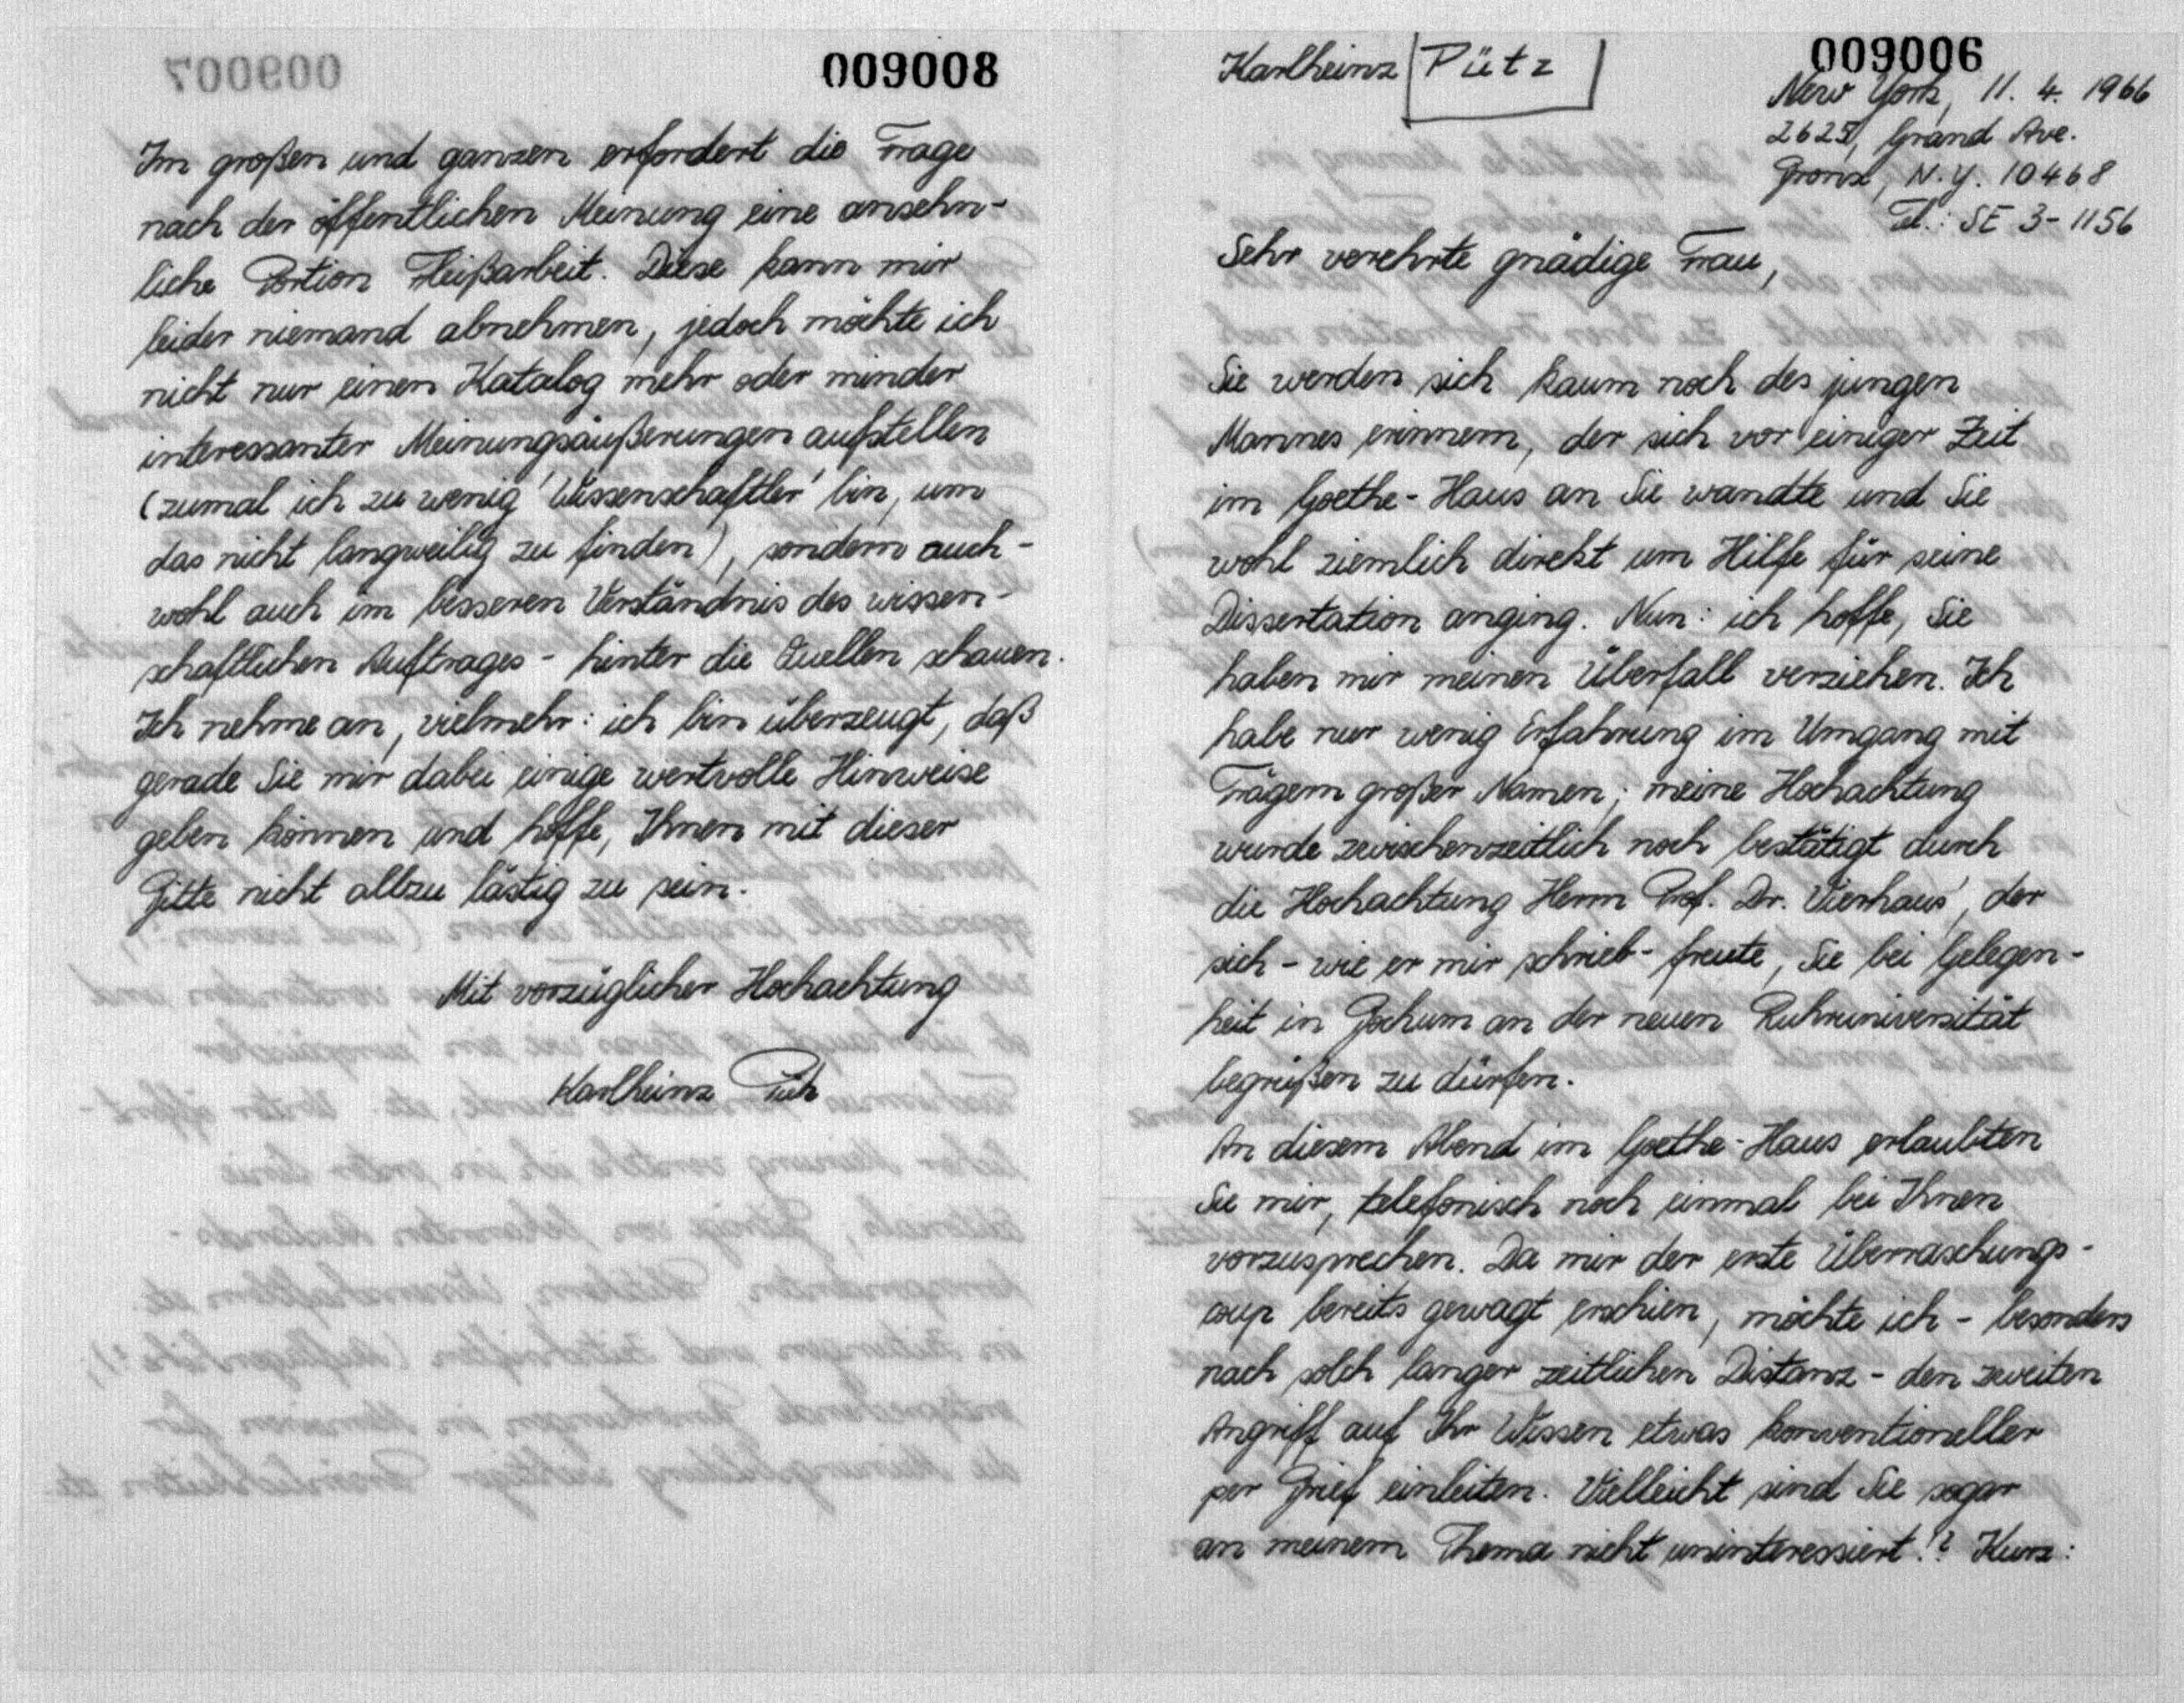 009008
Im großen und ganzen erfordert die Frage
nach der öffentlichen Meinung eine ansehn-
liche Portion Fleißarbeit. Diese kann mir
leider niemand abnehmen, jedoch möchte ich
nicht nur einen Katalog mehr oder minder
interessanter Meinungsäußerungen aufstellen
(zumal ich zu wenig 'Wissenschaftler' bin, um
das nicht langweilig zu finden), sondern auch -
wohl auch im besseren Verständnis des wissen-
schaftlichen Auftrages - hinter die Quellen schauen.
Ich nehme an, vielmehr: ich bin überzeugt, daß
gerade Sie mir dabei einige wertvolle Hinweise
geben können und hoffe, Ihnen mit dieser
Bitte nicht allzu lästig zu sein.
Mit vorzüglicher Hochachtung
Karlheinz Pütz
009006
Karlheinz Pütz
New York, 11. 4. 1966
2625, Grand Ave.
Bronx, N.Y. 10468
Tel.: SE 3-1156
Sehr verehrte gnädige Frau,
Sie werden sich kaum noch des jungen
Mannes erinnern, der sich vor einiger Zeit
im Goethe-Haus an Sie wandte und Sie
wohl ziemlich direkt um Hilfe für seine
Dissertation anging. Nun: ich hoffe, Sie
haben mir meinen Überfall verziehen. Ich
habe nur wenig Erfahrung im Umgang mit
Trägern großer Namen; meine Hochachtung
wurde zwischenzeitlich noch bestätigt durch
die Hochachtung Herrn Prof. Dr. Vierhaus', der
sich - wie er mir schrieb - freute, Sie bei Gelegen-
heit in Bochum an der neuen Ruhruniversität
begrüßen zu dürfen.
An diesem Abend im Goethe-Haus erlaubten
Sie mir, telefonisch noch einmal bei Ihnen
vorzusprechen. Da mir der erste Überraschungs-
coup bereits gewagt erschien, möchte ich - besonders
nach solch langer zeitlichen Distanz - den zweiten
Angriff auf Ihr Wissen etwas konventioneller
per Brief einleiten. Vielleicht sind Sie sogar
an meinem Thema nicht uninteressiert!? Kurz: